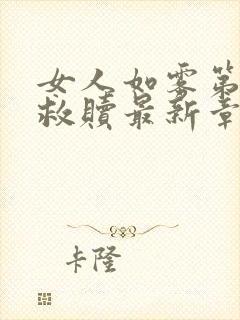 女人如雾第
救赎最新章
卡隆